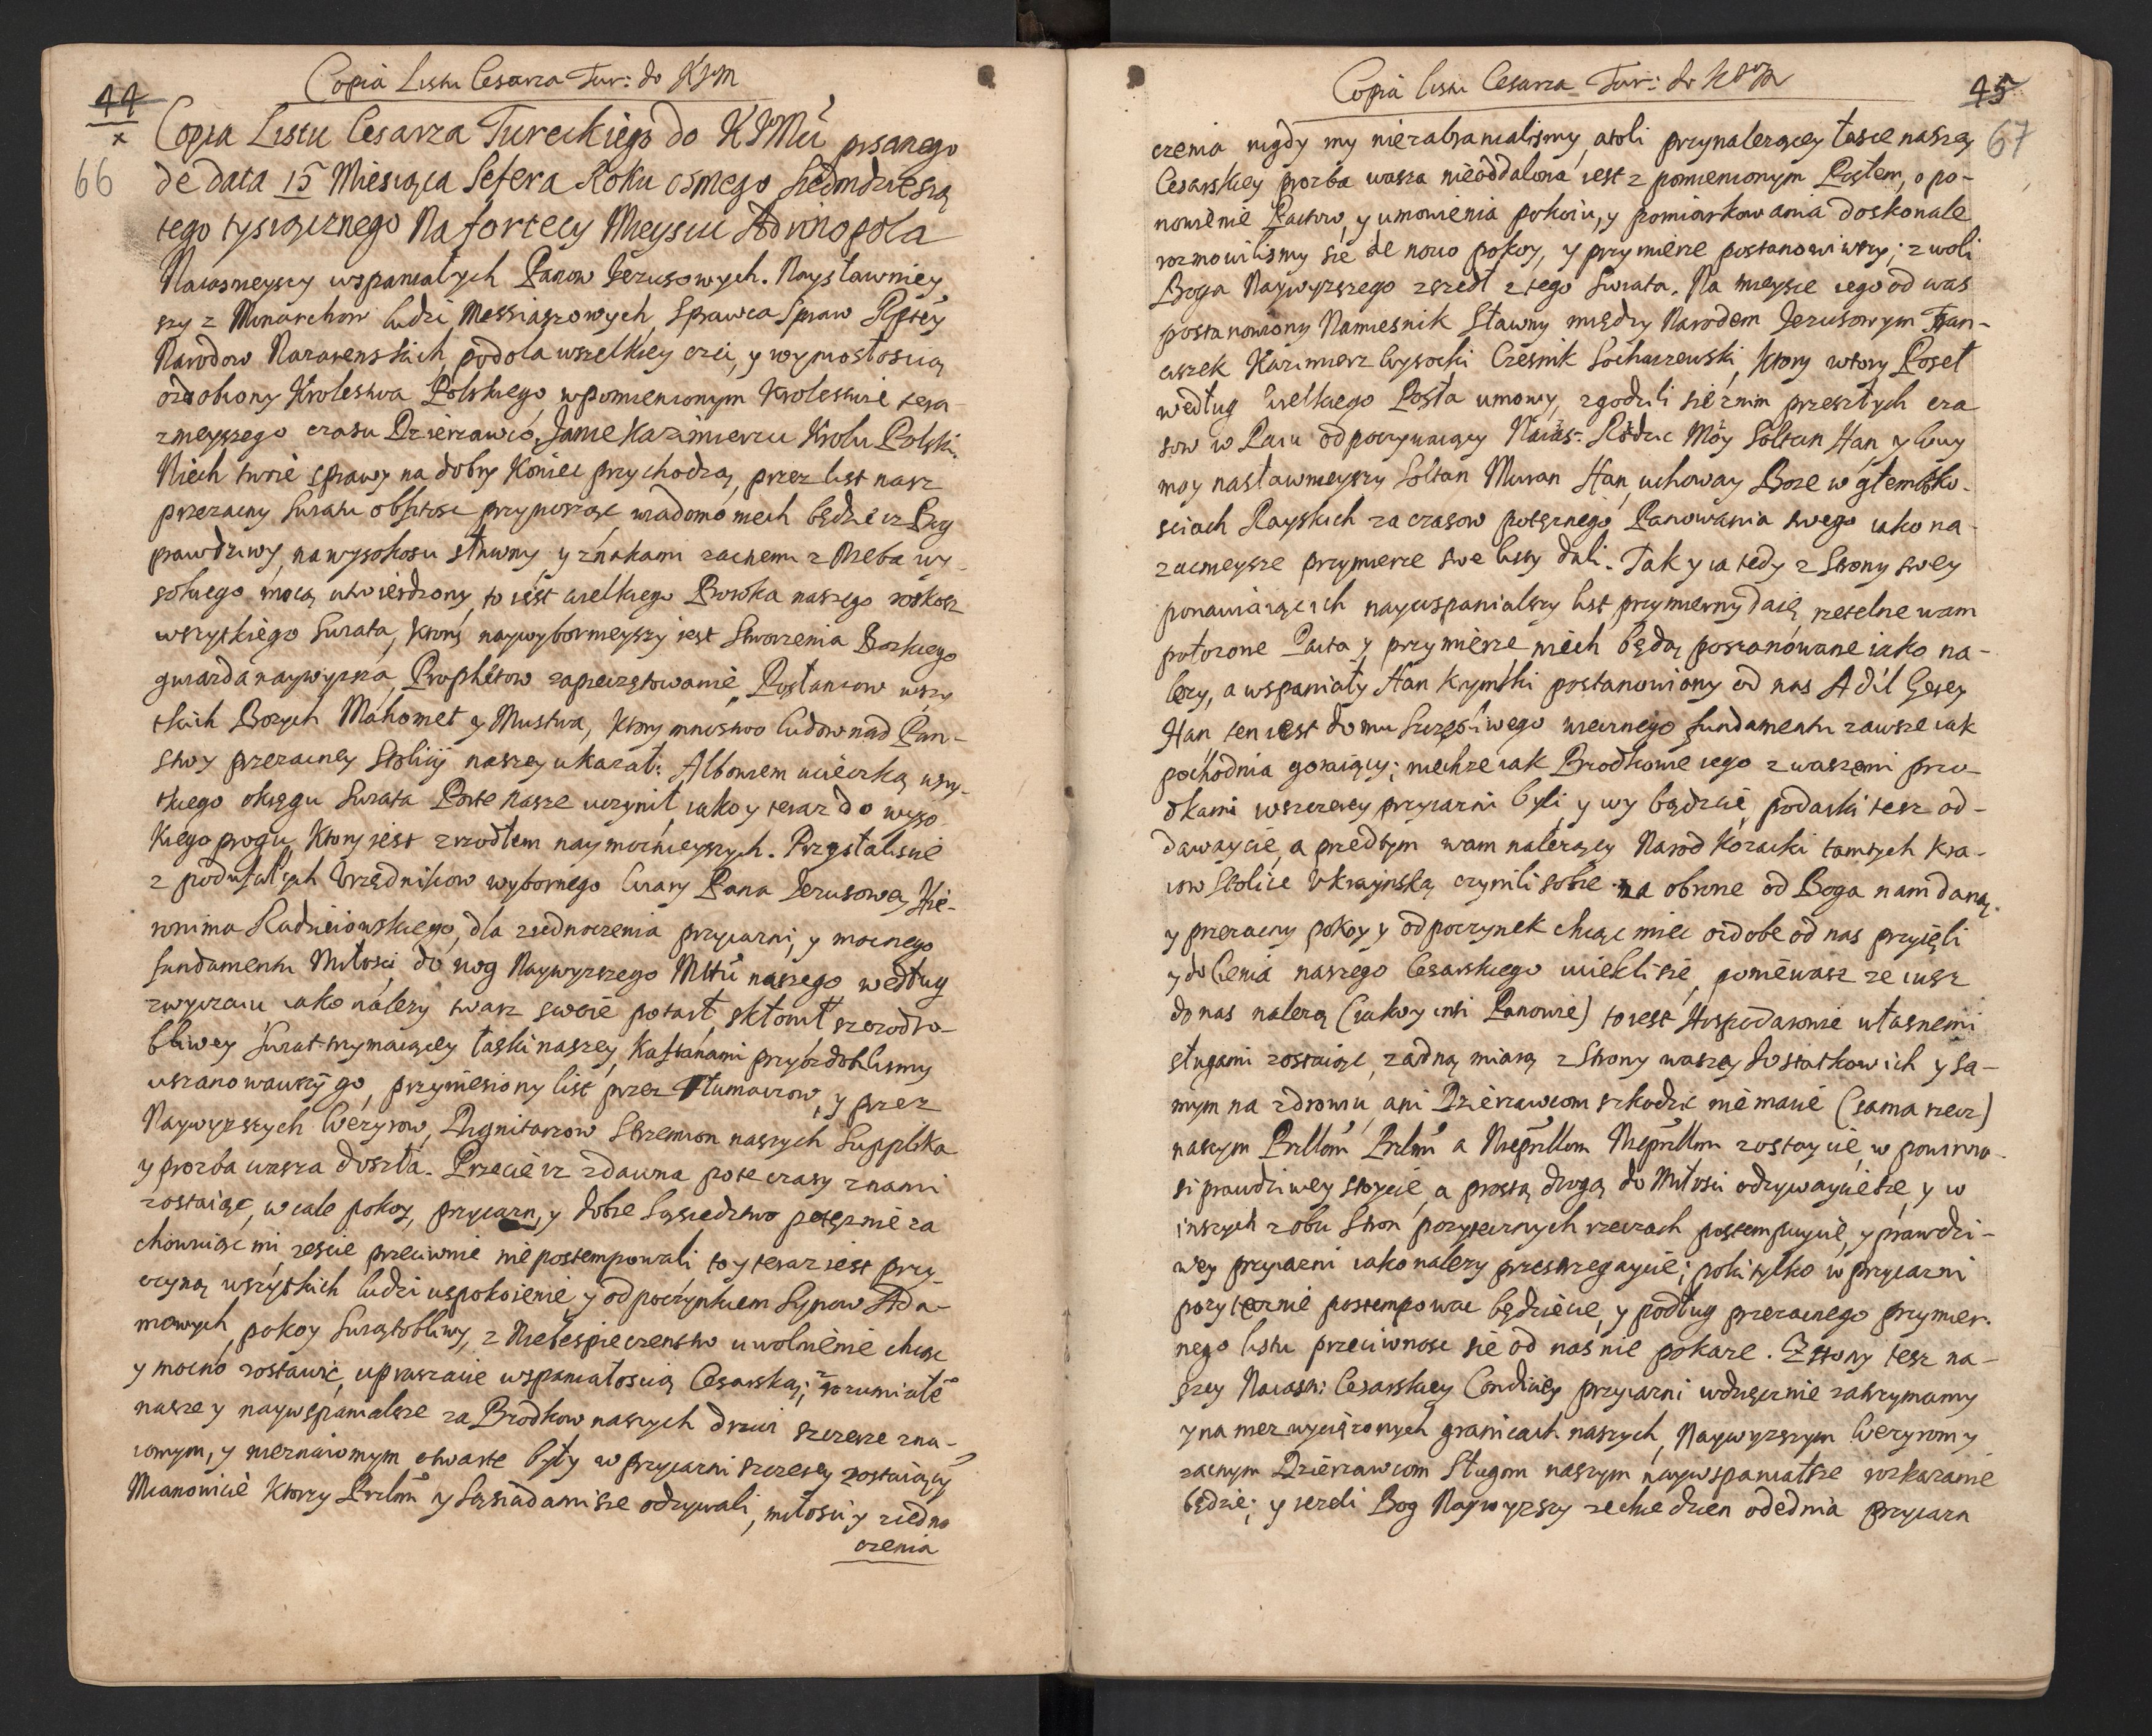 Copia Listu Cesarza Tur: do KJM
44
x
66
Copia Listu Cesarza Tureckiego do KJMci pisanego
de data 15 Miesiąca Sefera Roku osmego siedmdziesią
tego tysiącznego Na fortecy Mieyscu Adrinopola
Naiasnieyszy wspaniałych Panow Jezusowych. Naysławniey
szy z Monarchow ludzi Messiaszowych, Sprawca Spraw Rptey
Narodow Nazarenskich, podola wszelkiey czci, y wyniosłoscią
ozdobiony Krolestwa Polskiego, wpomienionym Krolestwie tera
znieyszego czasu Dzierzawco, Janie Kazimierzu Krolu Polski.
Niech twoie sprawy na dobry koniec przychodzą, przez list nasz
przezacny Swiatu obfitosc przynosząc wiadomo niech będzie iz Bog
prawdziwy, na wysokosci sławny y znakami zacnemi z Nieba wy
sokiego mocą utwierdzony, to iest wielkiego Proroka naszego roskosz
wszytkiego Swiata, ktory naywybornieyszy iest Stworzenia Boskiego
gwiazda naywyzsza, Prophetow zapieczętowanie, Posłancow wszy
tkich Bozych Mahomet y Mustwa, ktory mnostwo ludow nad Pan-
stwy przezacney Stolicy naszey ukazał: Albowiem ucieczką wszy-
tkiego okręgu Swiata Porte Nasze uczynił, iako y teraz do wyso
kiego progu, Ktory iest zrzodłem naymocnieyszych. Przystalscie
z poduf́ałych Urzędnikow wybornego Wiary Pana Jezusowey Hie-
ronima Radzieiowskiego, dla ziednoczenia przyiazni, y mocnego
fundamentu Miłosci do nog Naywyzszego Mttu naszego według
zwyczaiu iako nalezy twarz swoie potarł, skłonił szczodro-
bliwey Swiat trzymaiącey łaski naszey, Kaftanami przyozdobilismy
uszanowawszy go, przyniesiony list przez Tłumaczow, y przez
Naywyzszych Wezyrow, Dignitarzow Strzemion naszych Supplika
y prozba wasza doszła. Przecie iz zdawna pote czasy z nami
zostaiąc, w cale pokoy, przyiazn, y dobre Sąsiedztwo potęznie za
chowuiąc mi, zescie przeciwnie nie postempowali to y teraz iest przy-
czyną wszystkich ludzi uspokoienie y odpoczynkiem Synow Ada-
mowych, pokoy Swiątobliwy, z Niebespieczenstw uwolnienie chcąc
y mocno zostawić, upraszacie wspaniałoscią Cesarską; zrozumiałe
nasze y naywspanialsze za Przodkow naszych drzwi szczerze zna-
iomym, y nieznaiomym otwarte były w przyiazni szczerey zostaiący
Mianowicie Ktorzy Przlmi y Sąsiadami sie odzywali, miłosci y ziedno
czenia
Copia listu Cesarza Tur: do KJM
45
67
czenia nigdy my niezabranialismy, atoli przynalezącey łasce naszey
Cesarskiey prozba wasza nieoddalona iest z pomienionym Posłem, o po-
nowienie Pactow, y umowienia pokoiu, y pomiarkowania doskonale
rozmowilismy sie de novo pokoy, y przymierze postanowiwszy; z woli
Boga Naywyzszego zszedł z tego Swiata. Na mieysce iego od was
postanowiony Namiesnik Sławny między Narodem Jezusowym Fran-
ciszek Kazimierz Wysocki Czesnik Sochaczewski, Ktory wtory Poseł
według Wielkiego Posła umowy zgodzili sie z nim przeszłych cza
sow w Raiu odpoczywaiący Naias: Rodzic Moy Sołtan Han y Wuy
moy nasławnieyszy Sołtan Muran Han, uchoway Boze w głembko-
sciach Rayskich za czasow potęznego Panowania swego iako na-
zacnieysze przymierze swe listy dali. Tak y ia tedy z Strony swey
ponawiaiąc ich naywspanialszy list przymierny daię, rzetelne wam
połozone Pacta y przymierze niech będą poszanowane iako na-
lezy, a wspaniały Han Krymski postanowiony od nas Adil Gerey
Han, ten iest domu szczęsliwego wiecznego fundamentu zawsze iak
pochodnia goraiący; niechze iak Przodkowie iego z waszemi przo-
dkami w szczerey przyiazni byli, y wy będzcie, podarki tesz od-
dawaycie, a przedtym wam nalezący Narod Kozacki tamtych kra-
iow Stolice Ukrainską czynili sobie na obrone od Boga nam daną
y przezacny pokoy y odpoczynek chcąc miec ozdobe od nas przyięli
y do Cenia naszego Cesarskiego uciekli sie, poniewasz ze iusz
do nas nalezą (iako y insi Panowie) to iest Hospodarowie własnemi
sługami zostaiąc, zadną miarą z Strony waszey dostatkow ich y sa-
mym na zdrowiu, ani Dzierzawcom szkodzic nie macie (sama rzecz)
naszym Przllom Przlmi a Nieprzllom Nieprzllmi zostaycie, w powinno-
sci prawdziwey stoycie, a prostą drogą do Miłosci odzywaycie sie, y w
inszych z obu Stron pozytecznych rzeczach postempuycie, y prawdzi-
wey przyiazni iako nalezy przestrzegaycie; poki tylko w przyiazni
pozytecznie postempowac będziecie, y podług przezacnego przymier-
nego listu przeciwnosc sie od nas nie pokaze. Z strony tesz na-
szey Naiasn: Cesarskiey Condiciey przyiazni wdzięcznie zatrzymamy
y na niezwyciężonych granicach naszych, Naywyzszym Wezyrom y
zacnym Dzierzawcom Sługom naszym naywspanialsze rozkazanie
będzie; y iezeli Bog Naywyzszy zechce dzien odednia przyiazn